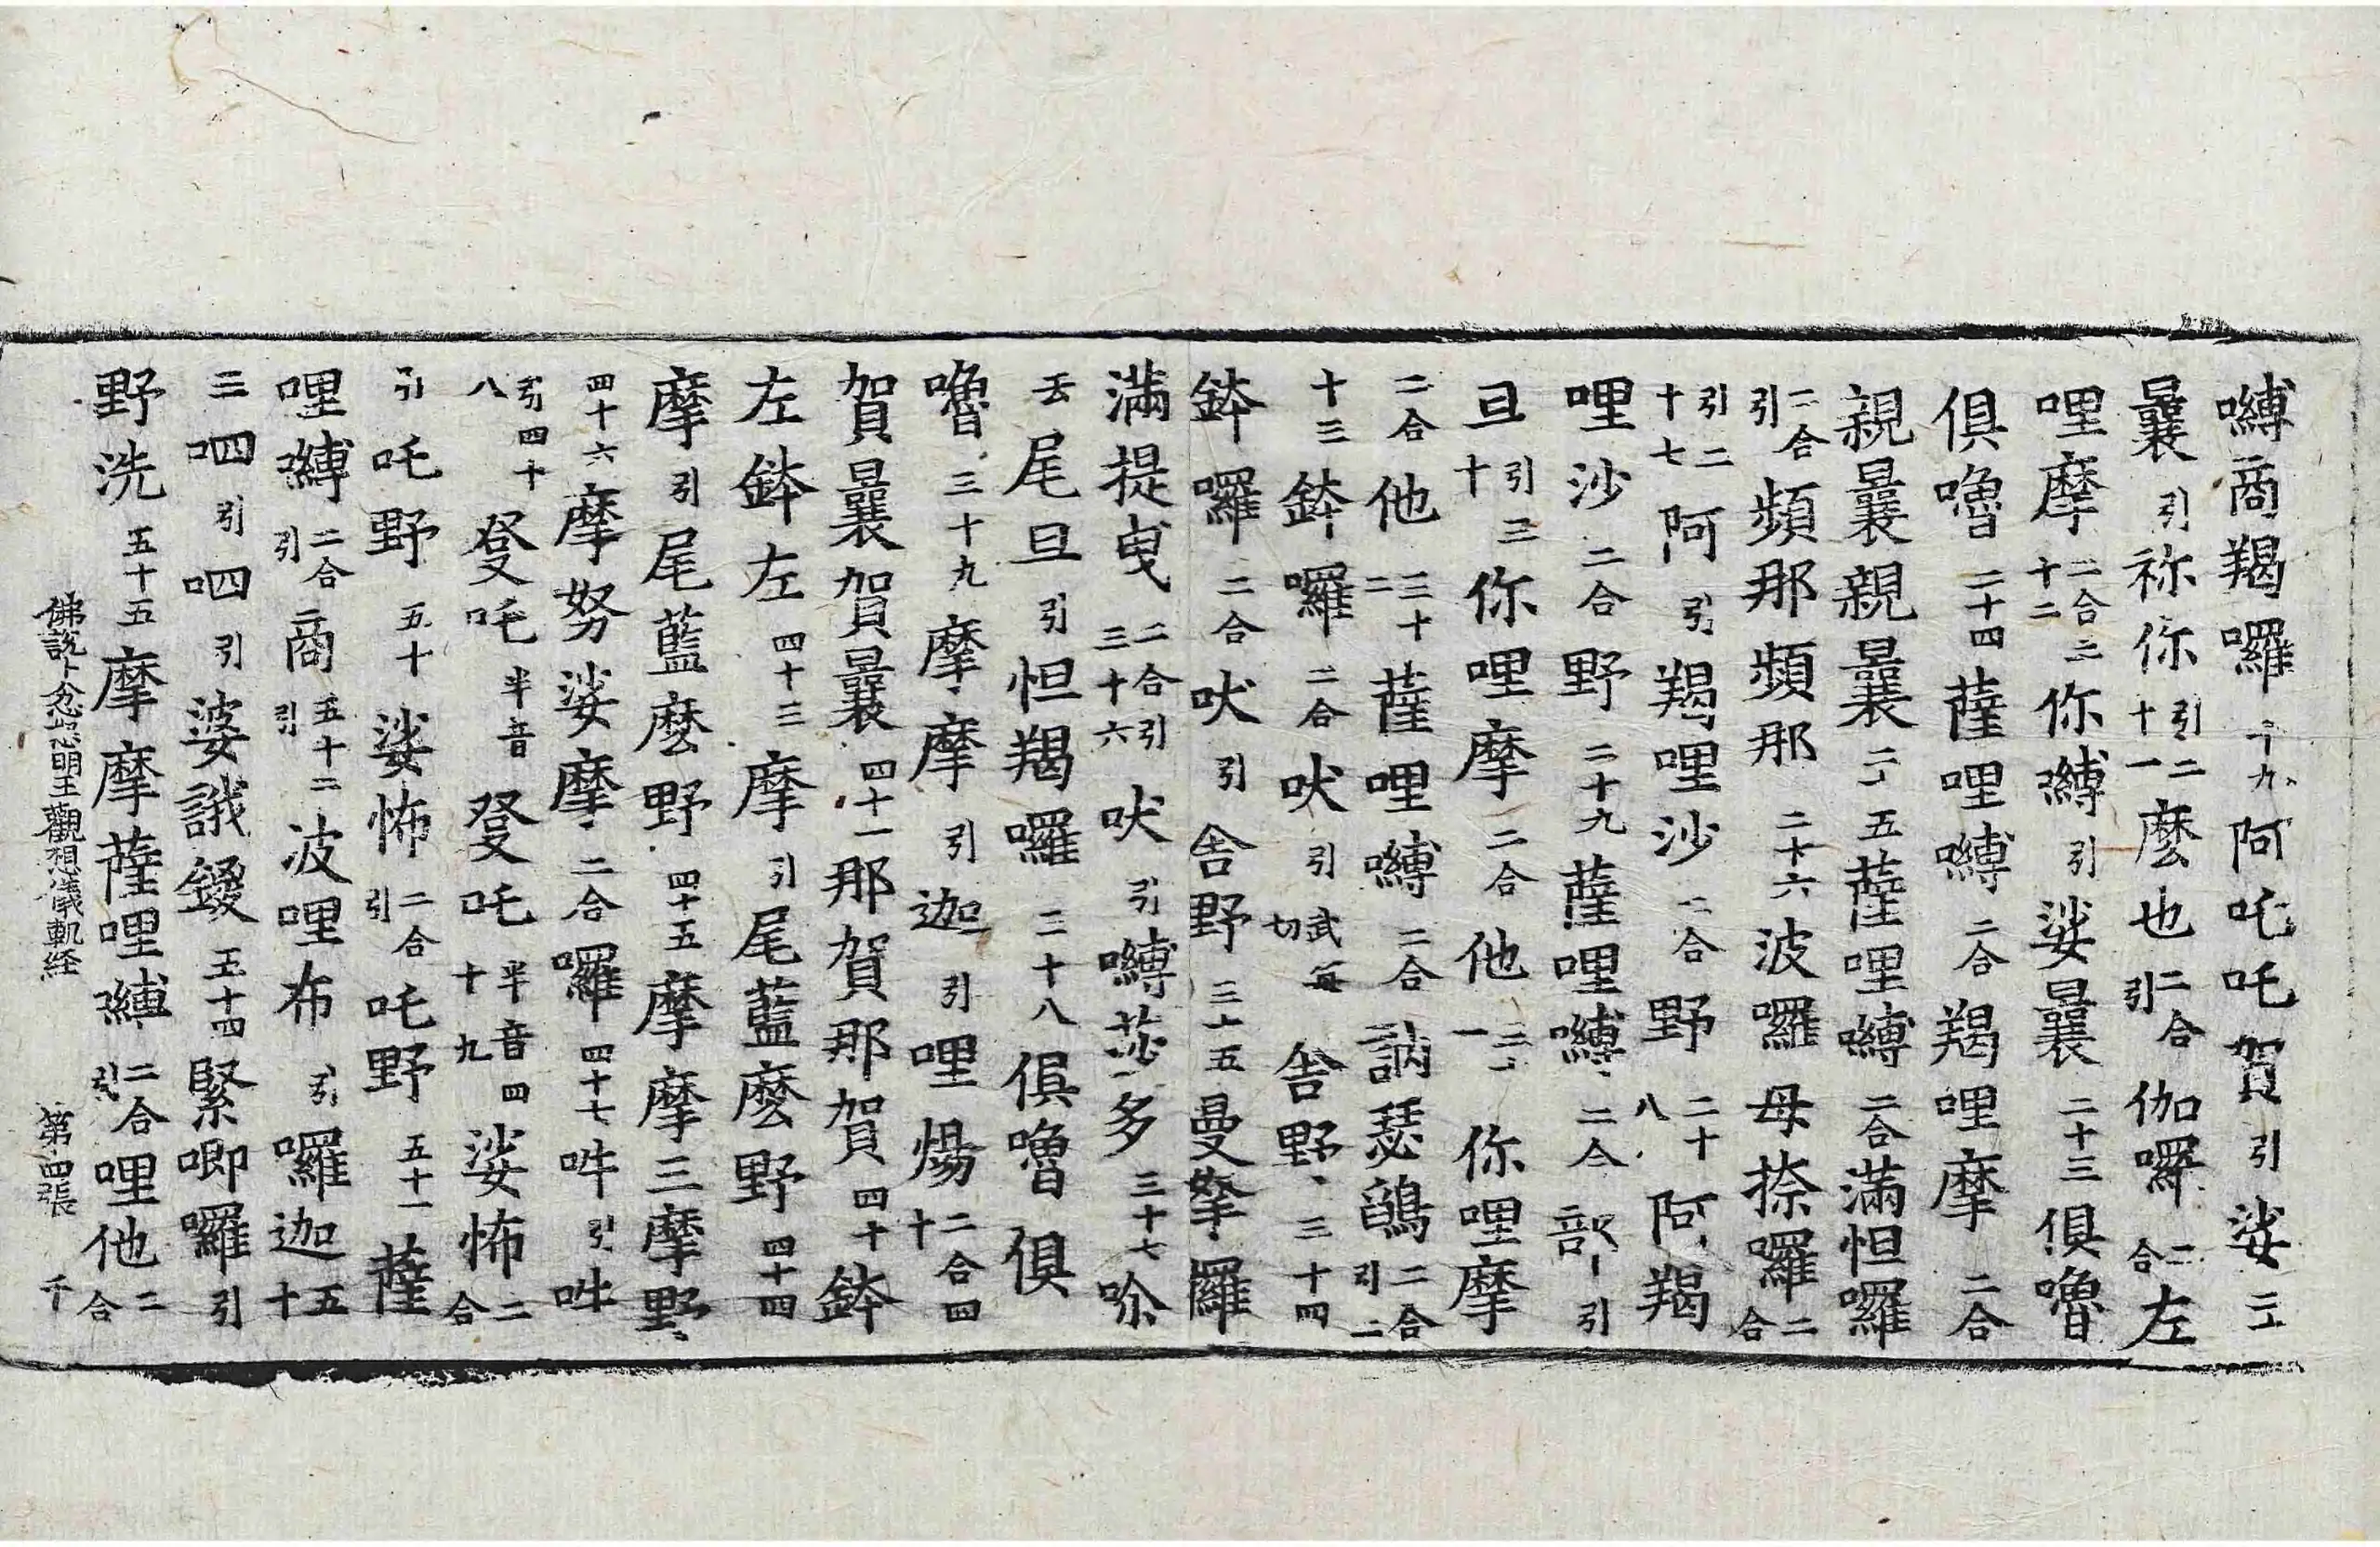 嚩商羯囉十九阿吒吒賀引娑二十
曩引祢你引二十一麼也二合引伽囉二合左
哩摩二合二十二你嚩引娑曩二十三俱嚕
俱嚕二十四薩哩嚩二合羯哩摩二合
親曩親曩二十五薩哩嚩二合滿怛囉
二合引頻那頻那二十六波囉母捺囉二合
引二十七阿引羯哩沙二合野二十八阿羯
哩沙二合野二十九薩哩嚩二合部引
旦引三十你哩摩二合他三十一你哩摩
二合他三十二薩哩嚩二合訥瑟鵮二合引三
十三鉢囉二合吠引武每切舍野三十四
鉢囉二合吠引舍野三十五曼拏羅
滿提曳二合引三十六吠引嚩莎多三十七唅
尾旦引怛羯囉三十八俱嚕俱
嚕三十九摩摩引迦引哩煬二合四十
賀曩賀曩四十一那賀那賀四十鉢
左鉢左四十三摩引尾藍麼野四十四
摩引尾藍麼野四十五摩摩三摩野
四十六摩努娑摩二合囉四十七吽引吽
引四十八發吒半音發吒半音四十九娑怖二合
引吒野五十娑怖二合引吒野五十一薩
哩嚩二合引商引五十二波哩布引囉迦五十
三呬引呬引婆誐鑁五十四緊唧囉引
野洗五十五摩摩薩哩嚩二合引哩他二合
佛說十忿怒明王觀想儀軌経 第四張 千